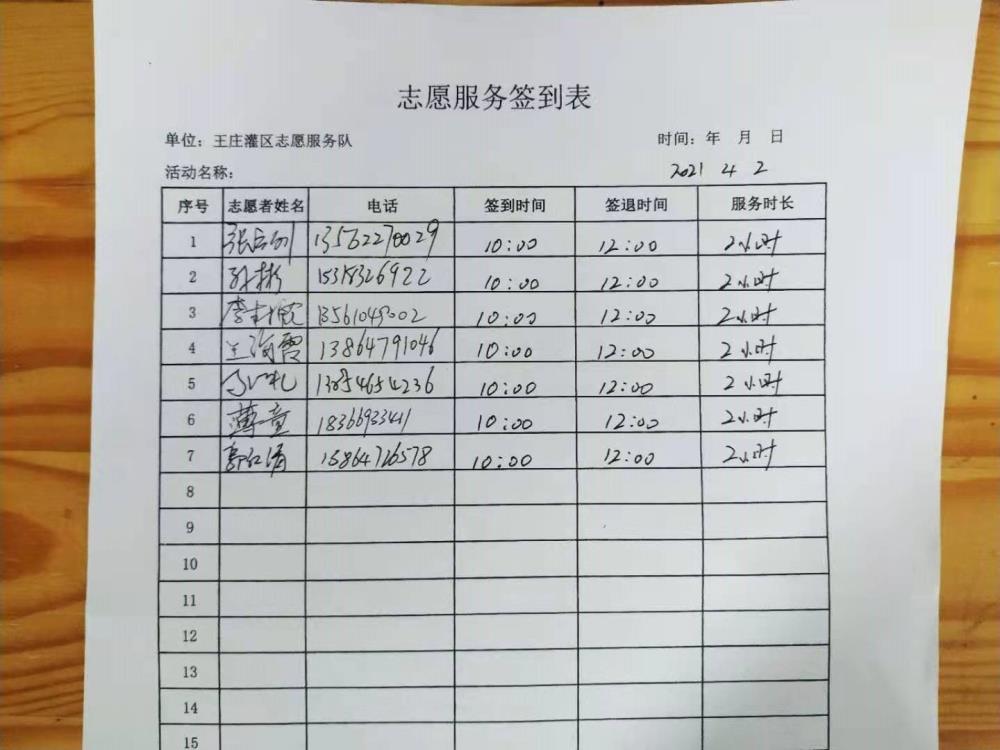 志愿服务签到表
单位：王庄灌区志愿服务队 时间：年 月 日
活动名称： 2021 4 2
序号 志愿者姓名 电话 签到时间 签退时间 服务时长
1 13562270029 10:00 12:00 2小时
2 孙彬 15318326922 10:00 12:00 2小时
3 10:00 12:00 2小时
4 王海霞 13864791046 10:00 12:00 2小时
5 13854654236 10:00 12:00 2小时
6 薄童 18366933411 10:00 12:00 2小时
7 15864726578 10:00 12:00 2小时
8
9
10
11
12
13
14
15